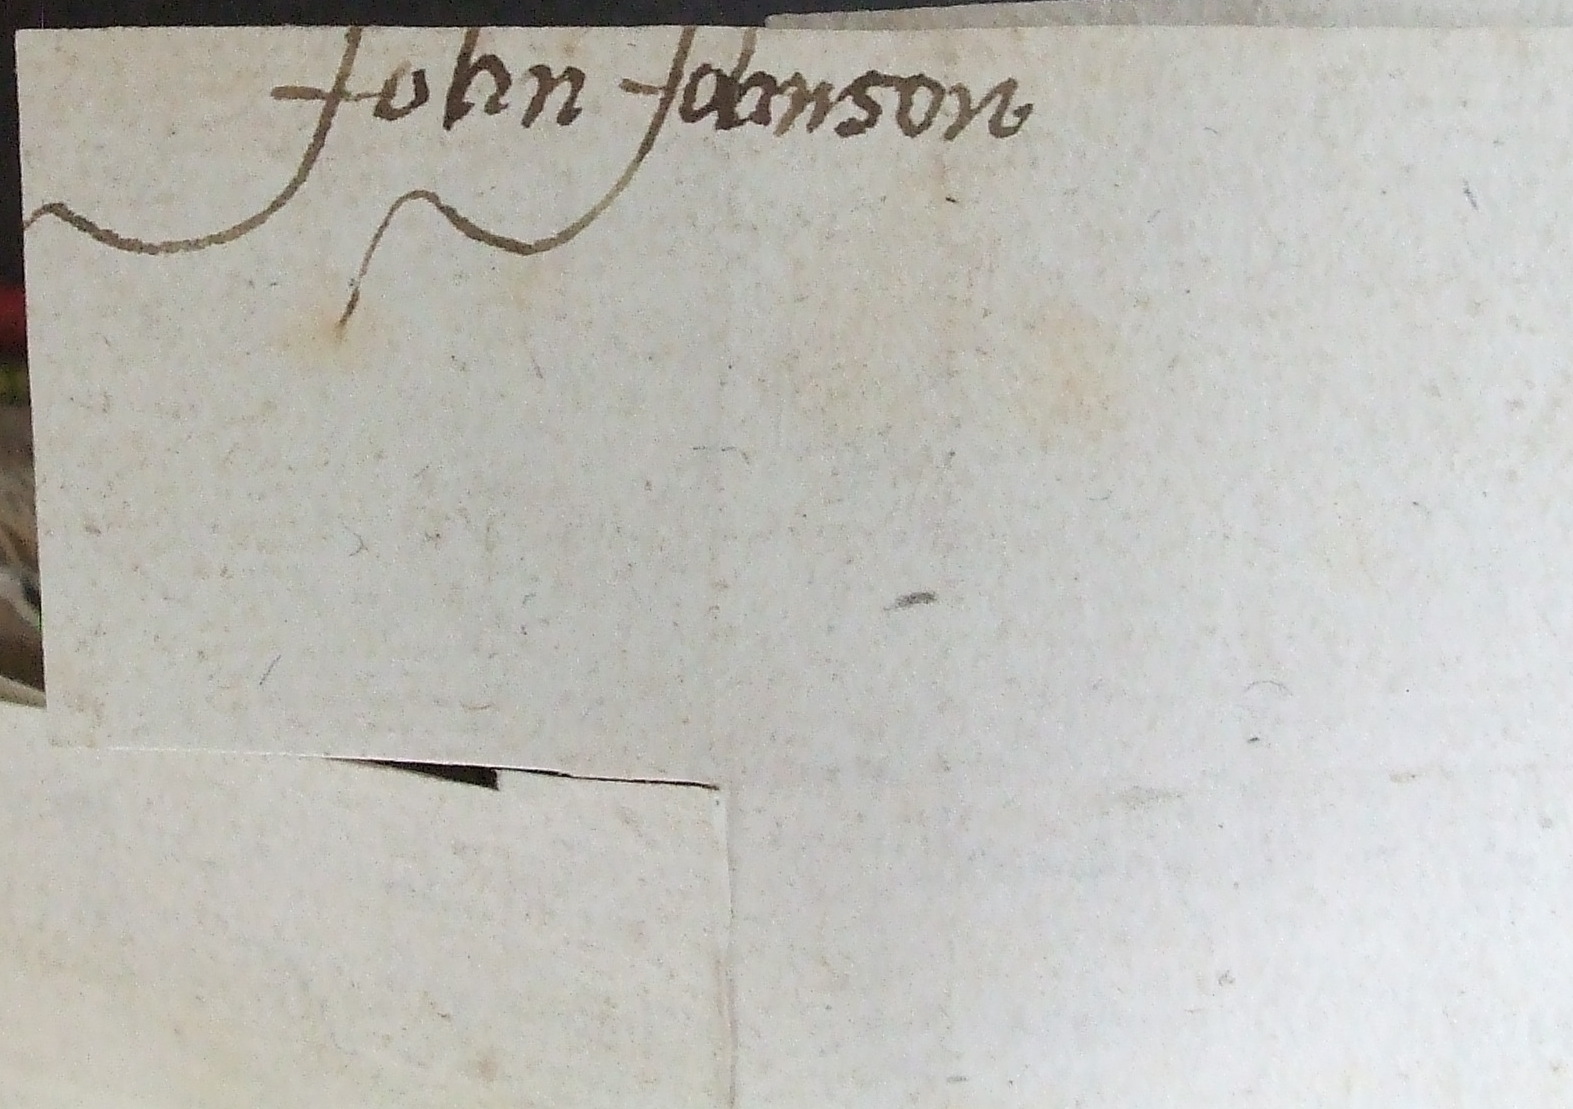 John Johnson